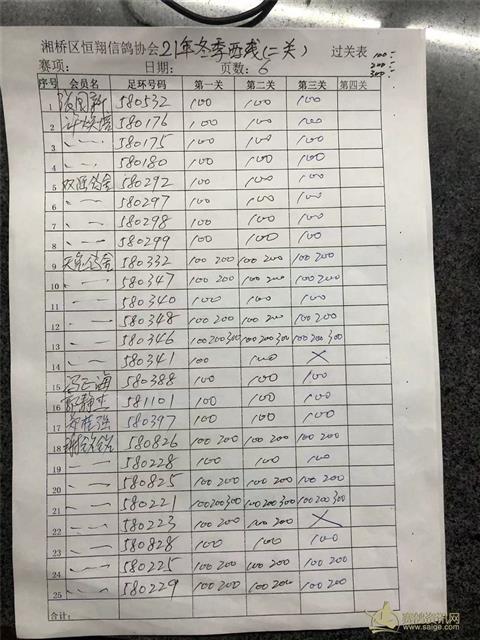 湘桥区恒翔信鸽协会21年冬季西线(二关) 过关表 100:
赛项: 日期: 页数:6 200:
300:
序号 会员名 足环号码 第一关 第二关 第三关 第四关
1 580532 100 100 100
2 580176 100 100 100
3 580175 100 100 100
4 580180 100 100 100
5 双強鸽舍 580292 100 100 100
6 580297 100 100 100
7 580298 100 100 100
8 580299 100 100 100
9 天鸟鸽舍 580332 100 200 100 200 100 200
10 580347 100 200 100 200 100 200
11 580340 100 100 100
12 580348 100 200 100 200 100 200
13 580346 100 200 300 100 200 300 100 200 300
14 580341 100 100 ×
15 冯正海 580388 100 100 100
16 郭静生 581101 100 100 100
17 郑桂强 580397 100 100 100
18 谢铭铭 580826 100 200 100 200 100 200
19 580228 100 100 100
20 580825 100 200 100 200 100 200
21 580221 100 200 300 100 200 300 100 200 300
22 580223 100 200 100 200 ×
23 580828 100 100 100
24 580225 100 200 100 200 100 200
25 580229 100 200 100 200 100 200
合计:
www.saige.com